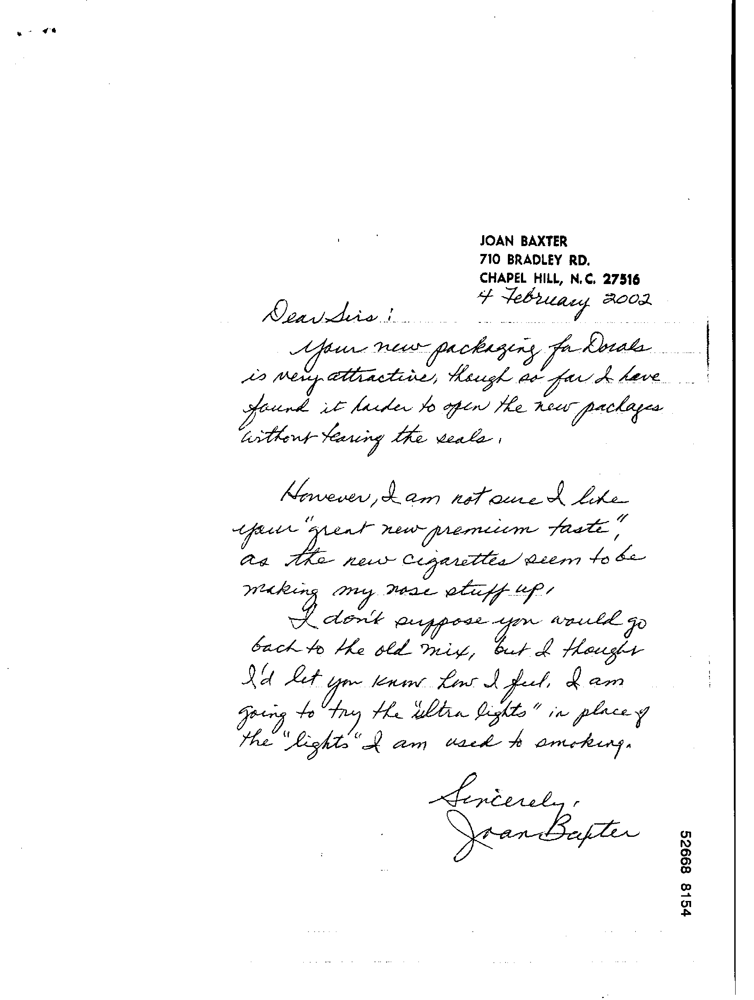 JOAN BAXTER
710 BRADLEY RD.
CHAPEL HILL, N.C. 27516
4 February 2002
Dear Sirs:
Your new packaging for Dorals
is very attractive, though so far I have
found it harder to open the new packages
without tearing the seals.
However, I am not sure I like
your "great new premium taste",
as the new cigarettes seem to be
making my nose stuff up.
I don't suppose you would go
back to the old mix, but I thought
I'd let you know how I feel. I am
going to try the "ultra lights" in place of
the "lights" I am used to smoking.
Sincerely,
Joan Baxter
52668 8154